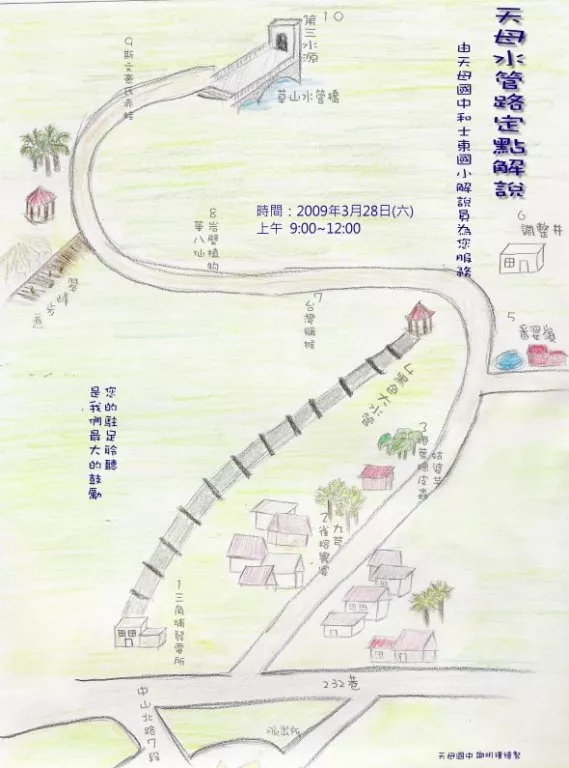 天母水管路定點解說
由天母國中和士東國小解說員為您服務
時間：2009年3月28日(六)
上午 9:00~12:00
10
第三水源
草山水管橋
9斯文豪氏赤蛙
翠峰步道
8岩壁植物
華八仙
7
台灣獼猴
6
調整井
5
4黑色大水管
3
姑婆芋
2
九芎
1三角埔發電所
232巷
中山北路7段
派出所
您的駐足聆聽
是我們最大的鼓勵